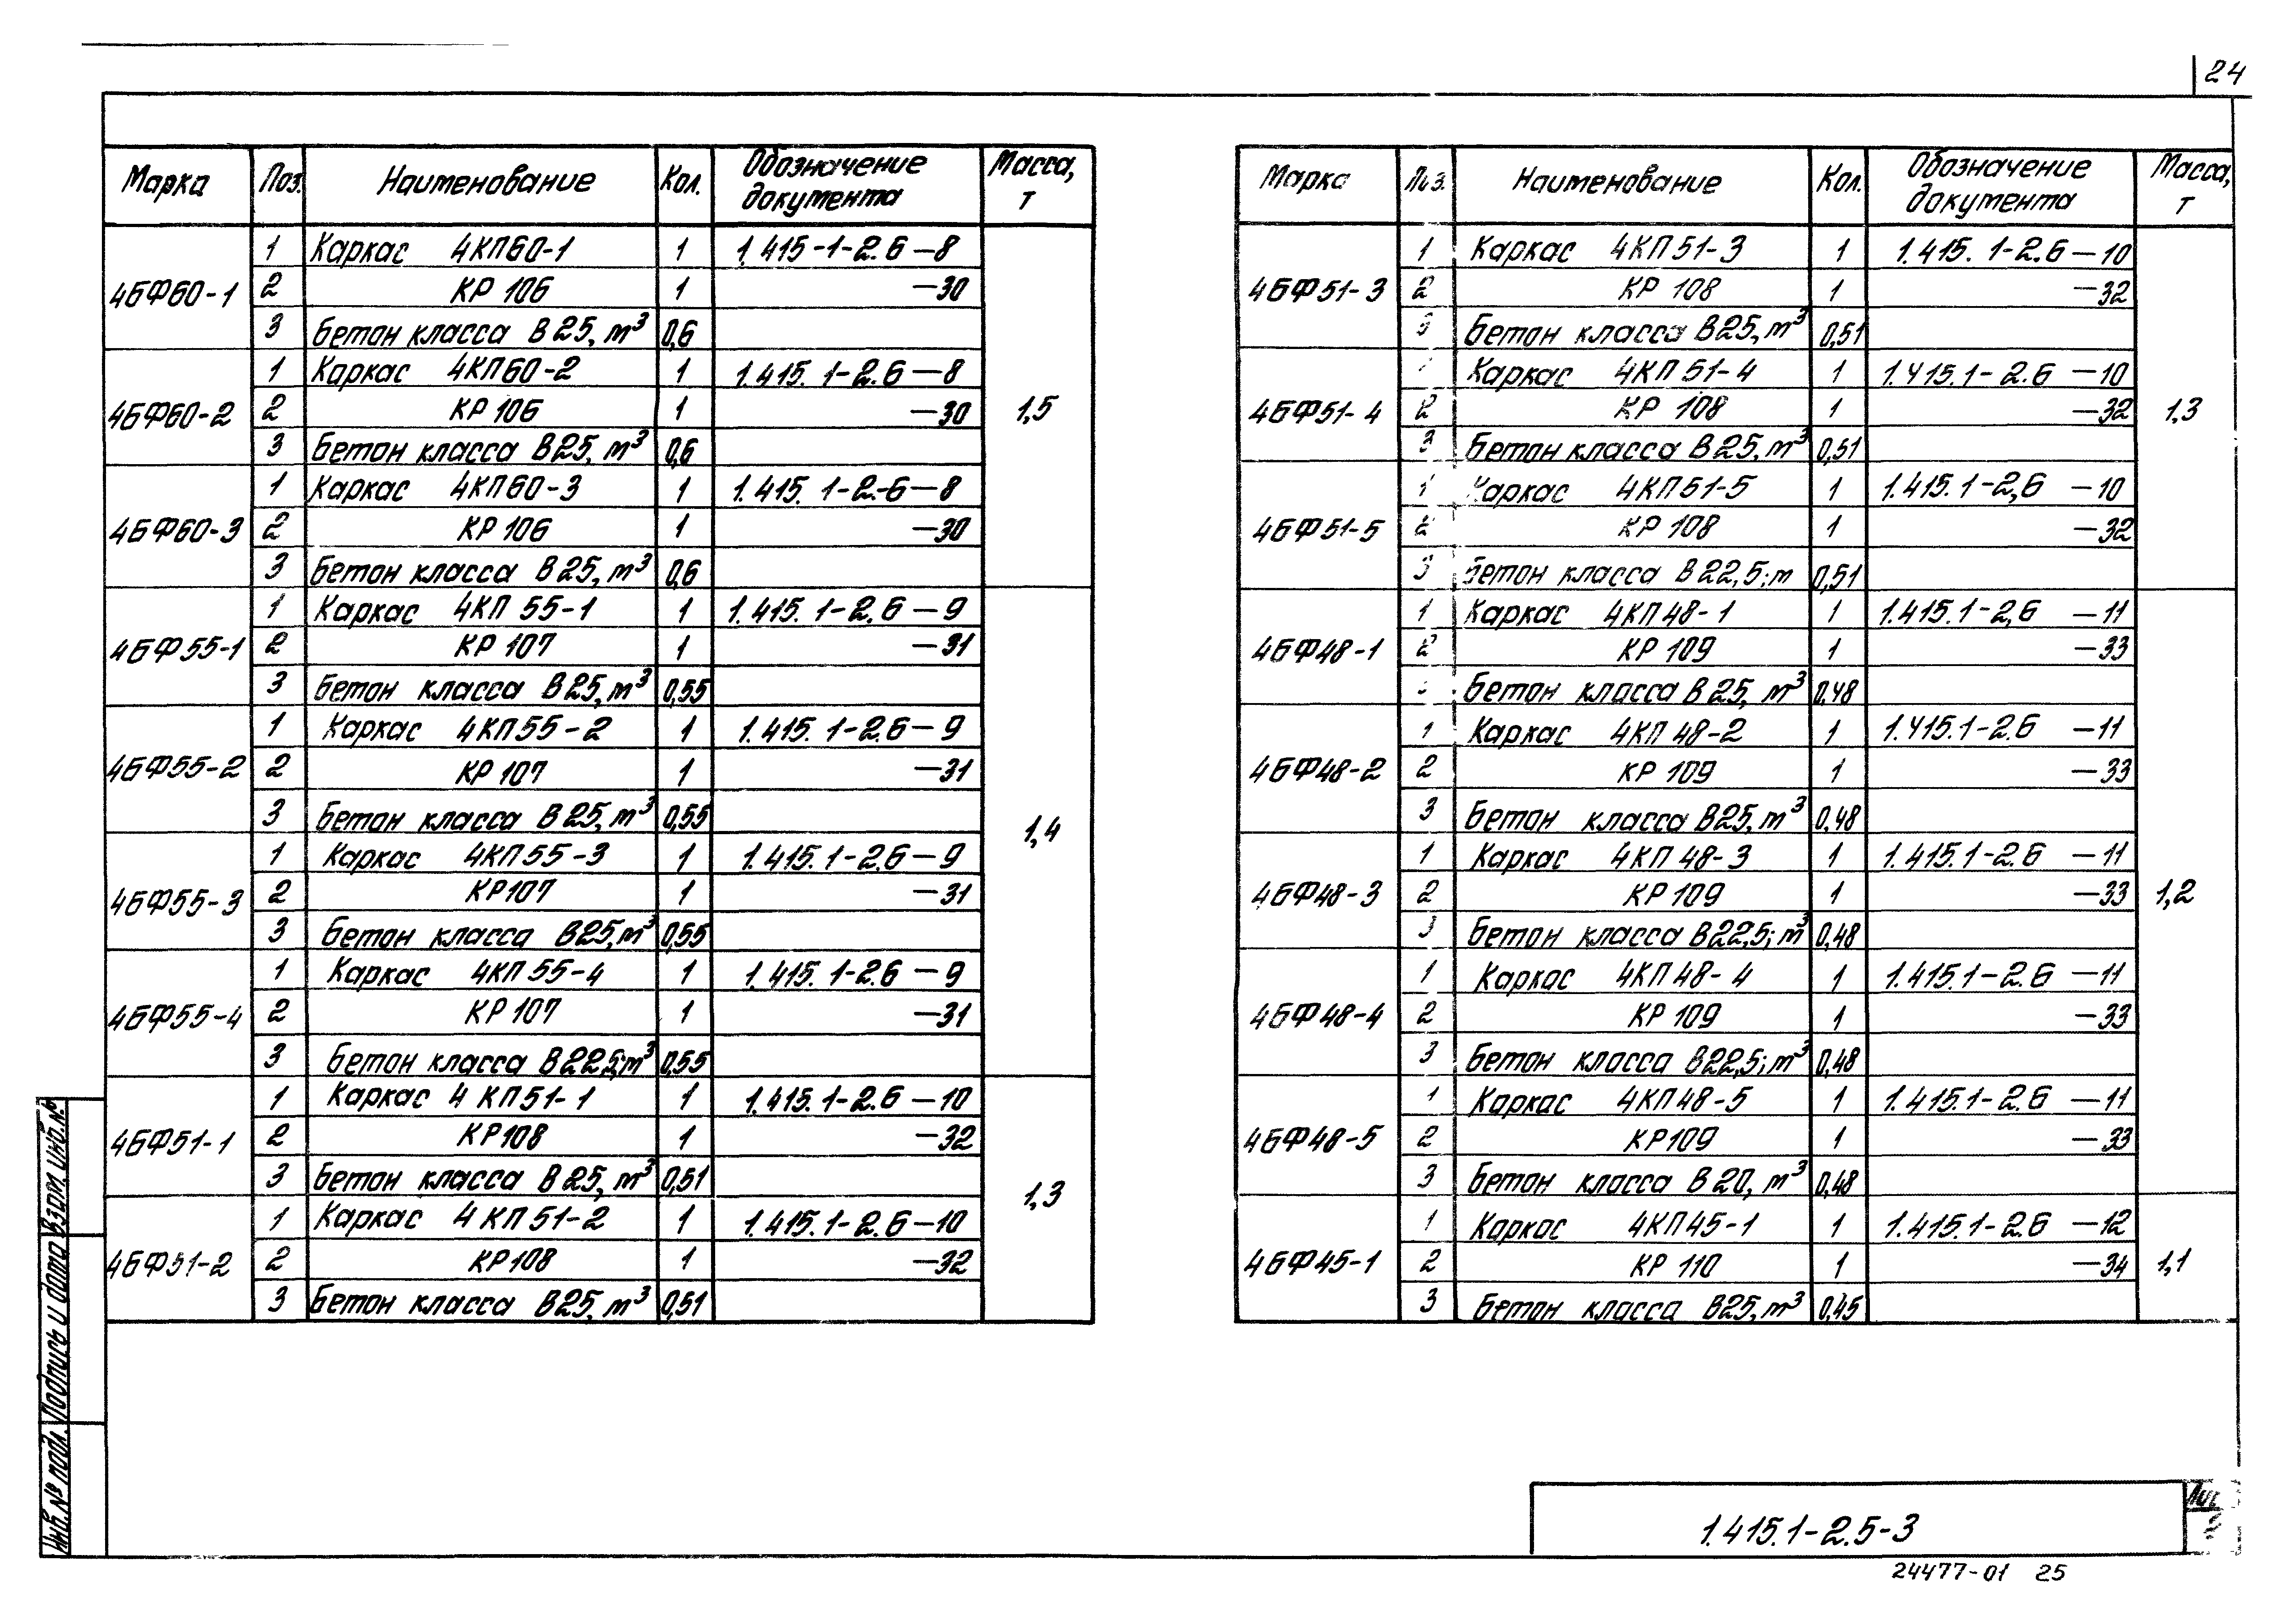 24
Марка Поз. Наименование Кол. Обозначение документа Масса, т
4БФ60-1 1 Каркас 4КП60-1 1 1.415-1-2.6-8
2 КР 106 1 -30
3 Бетон класса В25, м³ 0,6
4БФ60-2 1 Каркас 4КП60-2 1 1.415.1-2.6-8 1,5
2 КР 106 1 -30
3 Бетон класса В25, м³ 0,6
4БФ60-3 1 Каркас 4КП60-3 1 1.415.1-2.-6-8
2 КР 106 1 -30
3 Бетон класса В25, м³ 0,6
4БФ55-1 1 Каркас 4КП 55-1 1 1.415.1-2.6-9
2 КР 107 1 -31
3 Бетон класса В25, м³ 0,55
4БФ55-2 1 Каркас 4КП55-2 1 1.415.1-2.6-9
2 КР 107 1 -31
3 Бетон класса В25, м³ 0,55
1,4
4БФ55-3 1 Каркас 4КП55-3 1 1.415.1-2.6-9
2 КР107 1 -31
3 Бетон класса В25, м³ 0,55
4БФ55-4 1 Каркас 4КП55-4 1 1.415.1-2.6-9
2 КР107 1 -31
3 Бетон класса В22,5; м³ 0,55
4БФ51-1 1 Каркас 4 КП51-1 1 1.415.1-2.6-10
2 КР108 1 -32
3 Бетон класса В25, м³ 0,51
1,3
4БФ51-2 1 Каркас 4 КП51-2 1 1.415.1-2.6-10
2 КР108 1 -32
3 Бетон класса В25, м³ 0,51
Марка Поз. Наименование Кол. Обозначение документа Масса, т
4БФ51-3 1 Каркас 4КП51-3 1 1.415.1-2.6-10
2 КР 108 1 -32
3 Бетон класса В25, м³ 0,51
4БФ51-4 1 Каркас 4КП51-4 1 1.415.1-2.6-10 1,3
2 КР 108 1 -32
3 Бетон класса В25, м³ 0,51
4БФ51-5 1 Каркас 4КП51-5 1 1.415.1-2,6-10
2 КР 108 1 -32
3 Бетон класса В22,5; м 0,51
4БФ48-1 1 Каркас 4КП48-1 1 1.415.1-2,6-11
2 КР 109 1 -33
3 Бетон класса В25, м³ 0,48
4БФ48-2 1 Каркас 4КП 48-2 1 1.415.1-2.6-11
2 КР 109 1 -33
3 Бетон класса В25, м³ 0,48
4БФ48-3 1 Каркас 4КП 48-3 1 1.415.1-2.6-11
2 КР 109 1 -33 1,2
3 Бетон класса В22,5; м³ 0,48
4БФ48-4 1 Каркас 4КП48-4 1 1.415.1-2.6-11
2 КР 109 1 -33
3 Бетон класса В22,5; м³ 0,48
4БФ48-5 1 Каркас 4КП48-5 1 1.415.1-2.6-11
2 КР109 1 -33
3 Бетон класса В20, м³ 0,48
4БФ45-1 1 Каркас 4КП45-1 1 1.415.1-2.6-12
2 КР 110 1 -34 1,1
3 Бетон класса В25, м³ 0,45
Инв. № подл. Подпись и дата Взам. инв. №
1.415.1-2.5-3
24477-01 25